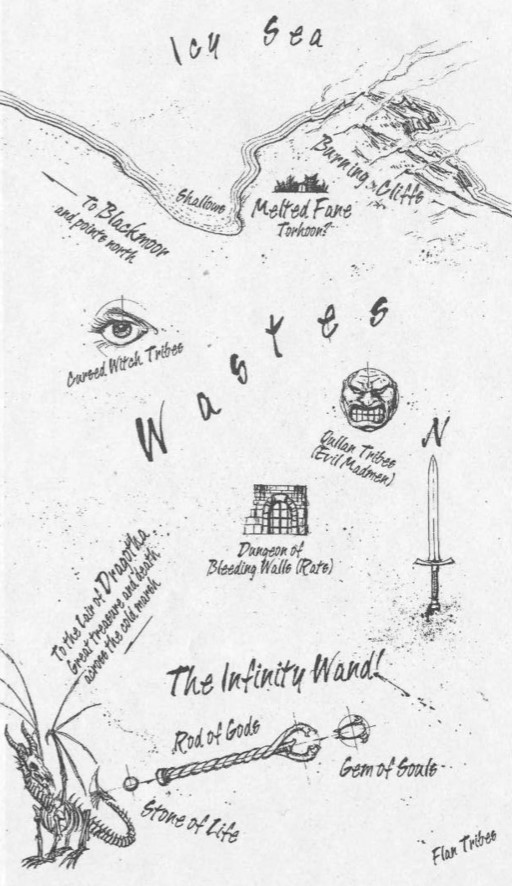 Icy Sea
Burning Cliffs
Shallows
Melted Fane
Torhoon?
To Blackmoor
and points north
Wastes
Cursed Witch Tribes
Qullan Tribes
(Evil Madmen)
N
Dungeon of
Bleeding Walls (Rats)
To the Lair of Dragotha
Great treasure and death
across the cold marsh
The Infinity Wand!
Rod of Gods
Gem of Souls
Stone of Life
Flan Tribes